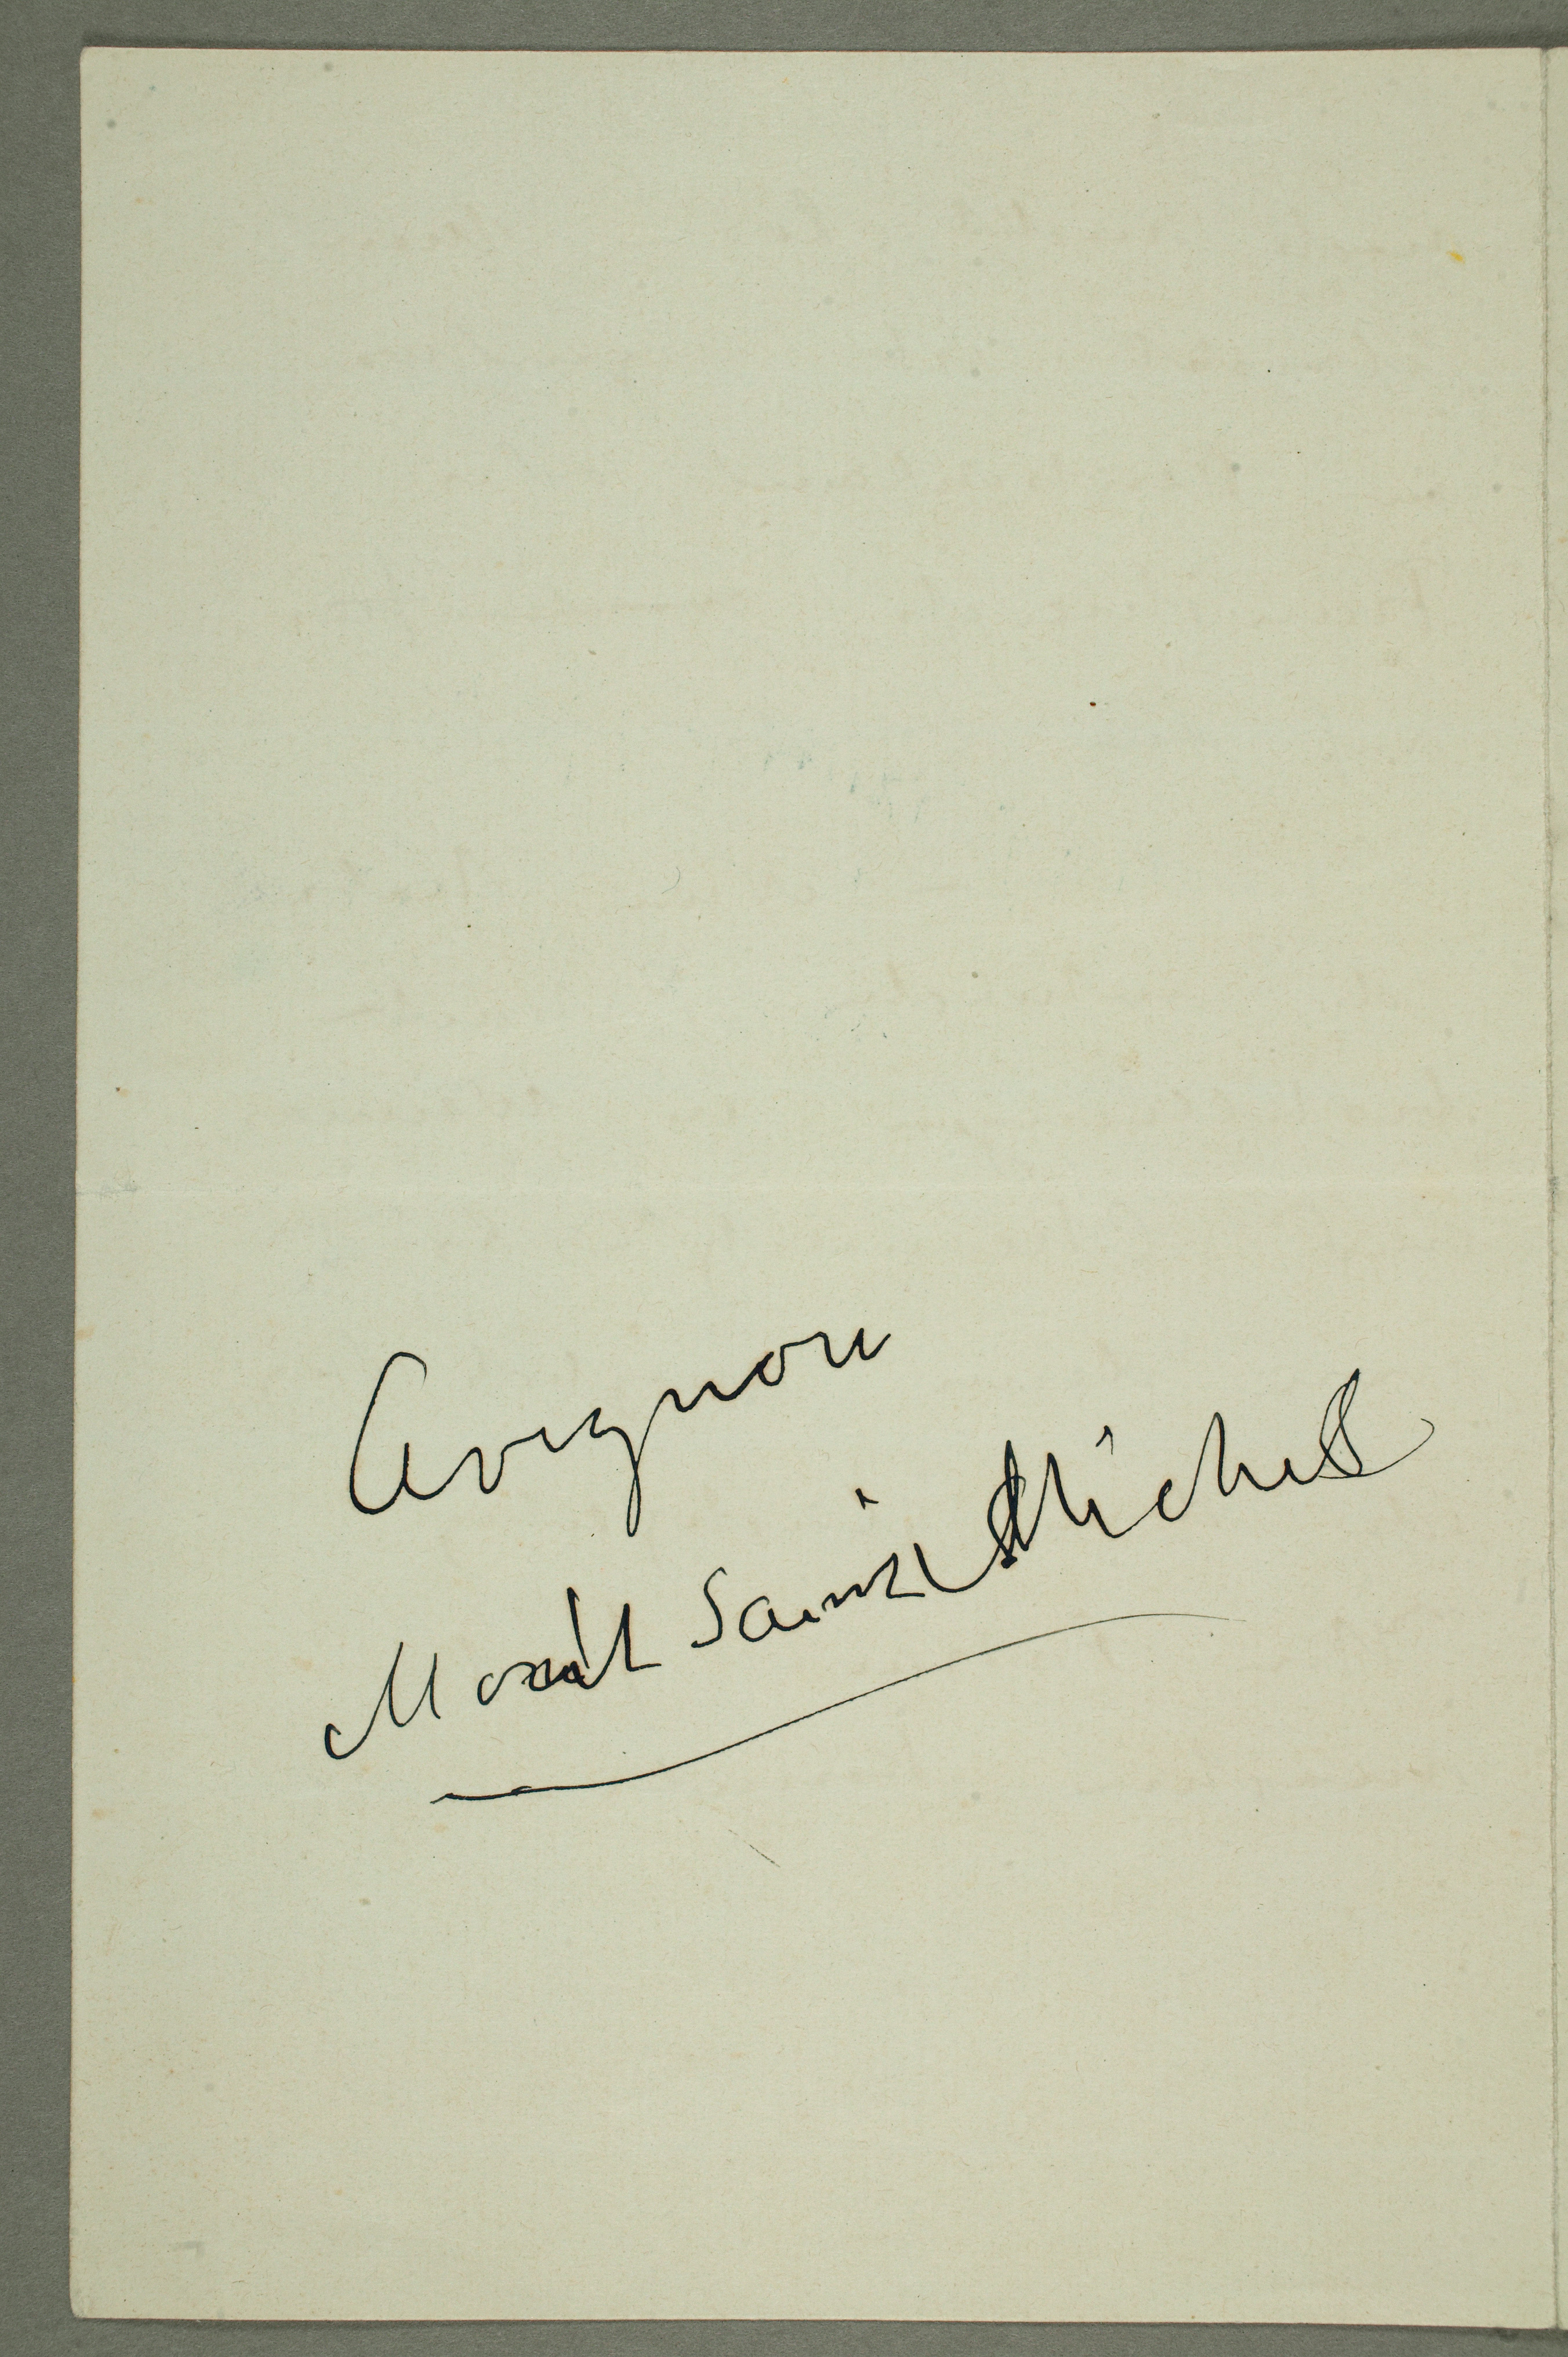 Avignon
Mont Saint Michel